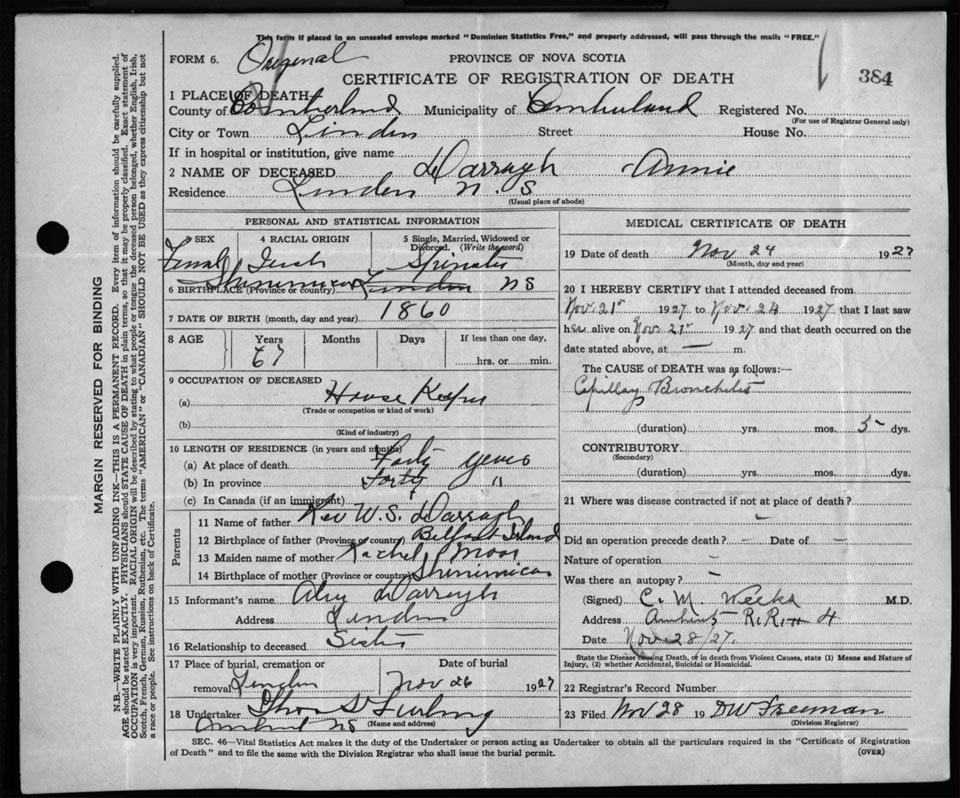 This form if placed in an unsealed envelope marked "Dominion Statistics Free," and properly addressed, will pass through the mails "FREE."
FORM 6. Original PROVINCE OF NOVA SCOTIA 384
CERTIFICATE OF REGISTRATION OF DEATH
1 PLACE OF DEATH
County of Cumberland Municipality of Cumberland Registered No.
(For use of Registrar General only)
City or Town Linden Street House No.
If in hospital or institution, give name
2 NAME OF DECEASED Darragh Annie
Residence Linden N.S
(Usual place of abode)
PERSONAL AND STATISTICAL INFORMATION
3 SEX 4 RACIAL ORIGIN 5 Single, Married, Widowed or Divorced. (Write the word)
Female Irish Spinster
6 BIRTHPLACE (Province or country) Shinimicas Linden NS
7 DATE OF BIRTH (month, day and year) 1860
8 AGE Years Months Days If less than one day,
67 hrs. or min.
9 OCCUPATION OF DECEASED
(a) House Keeper
(Trade or occupation or kind of work)
(b)
(Kind of industry)
10 LENGTH OF RESIDENCE (in years and months)
(a) At place of death Forty years
(b) In province Forty "
(c) In Canada (if an immigrant)
Parents
11 Name of father Rev W.S. Darragh
12 Birthplace of father (Province or country) Belfast Ireland
13 Maiden name of mother Rachel
14 Birthplace of mother (Province or country) Shinimicas
15 Informant's name Darragh
Address Linden
16 Relationship to deceased Sister
17 Place of burial, cremation or Date of burial
removal Linden Nov 26 1927
18 Undertaker Thos S
Amherst NS (Name and address)
MEDICAL CERTIFICATE OF DEATH
19 Date of death Nov 24 1927
(Month, day and year)
20 I HEREBY CERTIFY that I attended deceased from
Nov. 21st 1927 to Nov. 24 1927 that I last saw
her alive on Nov. 21st 1927 and that death occurred on the
date stated above, at — m.
The CAUSE OF DEATH was as follows:—
Capillary Bronchitis
(duration) yrs. mos. 5 dys.
CONTRIBUTORY
(Secondary)
(duration) yrs. mos. dys.
21 Where was disease contracted if not at place of death?
Did an operation precede death? — Date of —
Nature of operation —
Was there an autopsy? —
(Signed) C. M. Weeks M.D.
Address Amherst R.R. 4
Date Nov 28/27
State the Disease Causing Death, or in death from Violent Causes, state (1) Means and Nature of
Injury, (2) whether Accidental, Suicidal or Homicidal.
22 Registrar's Record Number
23 Filed Nov 28 19 DW Freeman
(Division Registrar)
SEC. 46—Vital Statistics Act makes it the duty of the Undertaker or person acting as Undertaker to obtain all the particulars required in the "Certificate of Registration
of Death" and to file the same with the Division Registrar who shall issue the burial permit. (OVER)
MARGIN RESERVED FOR BINDING
N.B.—WRITE PLAINLY WITH UNFADING INK—THIS IS A PERMANENT RECORD. Every item of information should be carefully supplied.
AGE should be stated EXACTLY. PHYSICIANS should STATE CAUSE OF DEATH in plain terms, so that it may be properly classified. Exact statement of
OCCUPATION is very important. RACIAL ORIGIN will be described by stating to what people or tongue the deceased person belonged, whether English, Irish,
Scotch, French, German, Russian, Ruthenian, etc. The terms "AMERICAN" or "CANADIAN" SHOULD NOT BE USED as they express citizenship but not
a race or people. See instructions on back of Certificate.